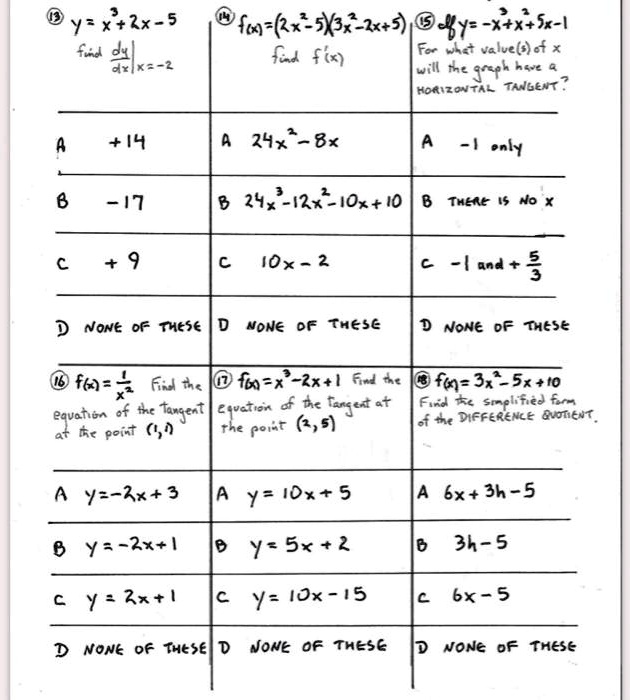 ⑬ y = x³+2x-5
find dy/dx|x=-2
A +14
B -17
C +9
D NONE OF THESE
⑭ f(x)=(2x²-5)(3x²-2x+5)
find f'(x)
A 24x²-8x
B 24x³-12x²-10x+10
C 10x-2
D NONE OF THESE
⑮ If y= -x³+x²+5x-1
For what value(s) of x
will the graph have a
HORIZONTAL TANGENT?
A -1 only
B THERE IS NO x
C -1 and + 5/3
D NONE OF THESE
⑯ f(x)= 1/x² Find the
equation of the Tangent
at the point (1,1)
A y=-2x+3
B y=-2x+1
C y=2x+1
D NONE OF THESE
⑰ f(x)=x³-2x+1 Find the
equation of the Tangent at
the point (2,5)
A y=10x+5
B y=5x+2
C y=10x-15
D NONE OF THESE
⑱ f(x)=3x²-5x+10
Find the simplified form
of the DIFFERENCE QUOTIENT.
A 6x+3h-5
B 3h-5
C 6x-5
D NONE OF THESE